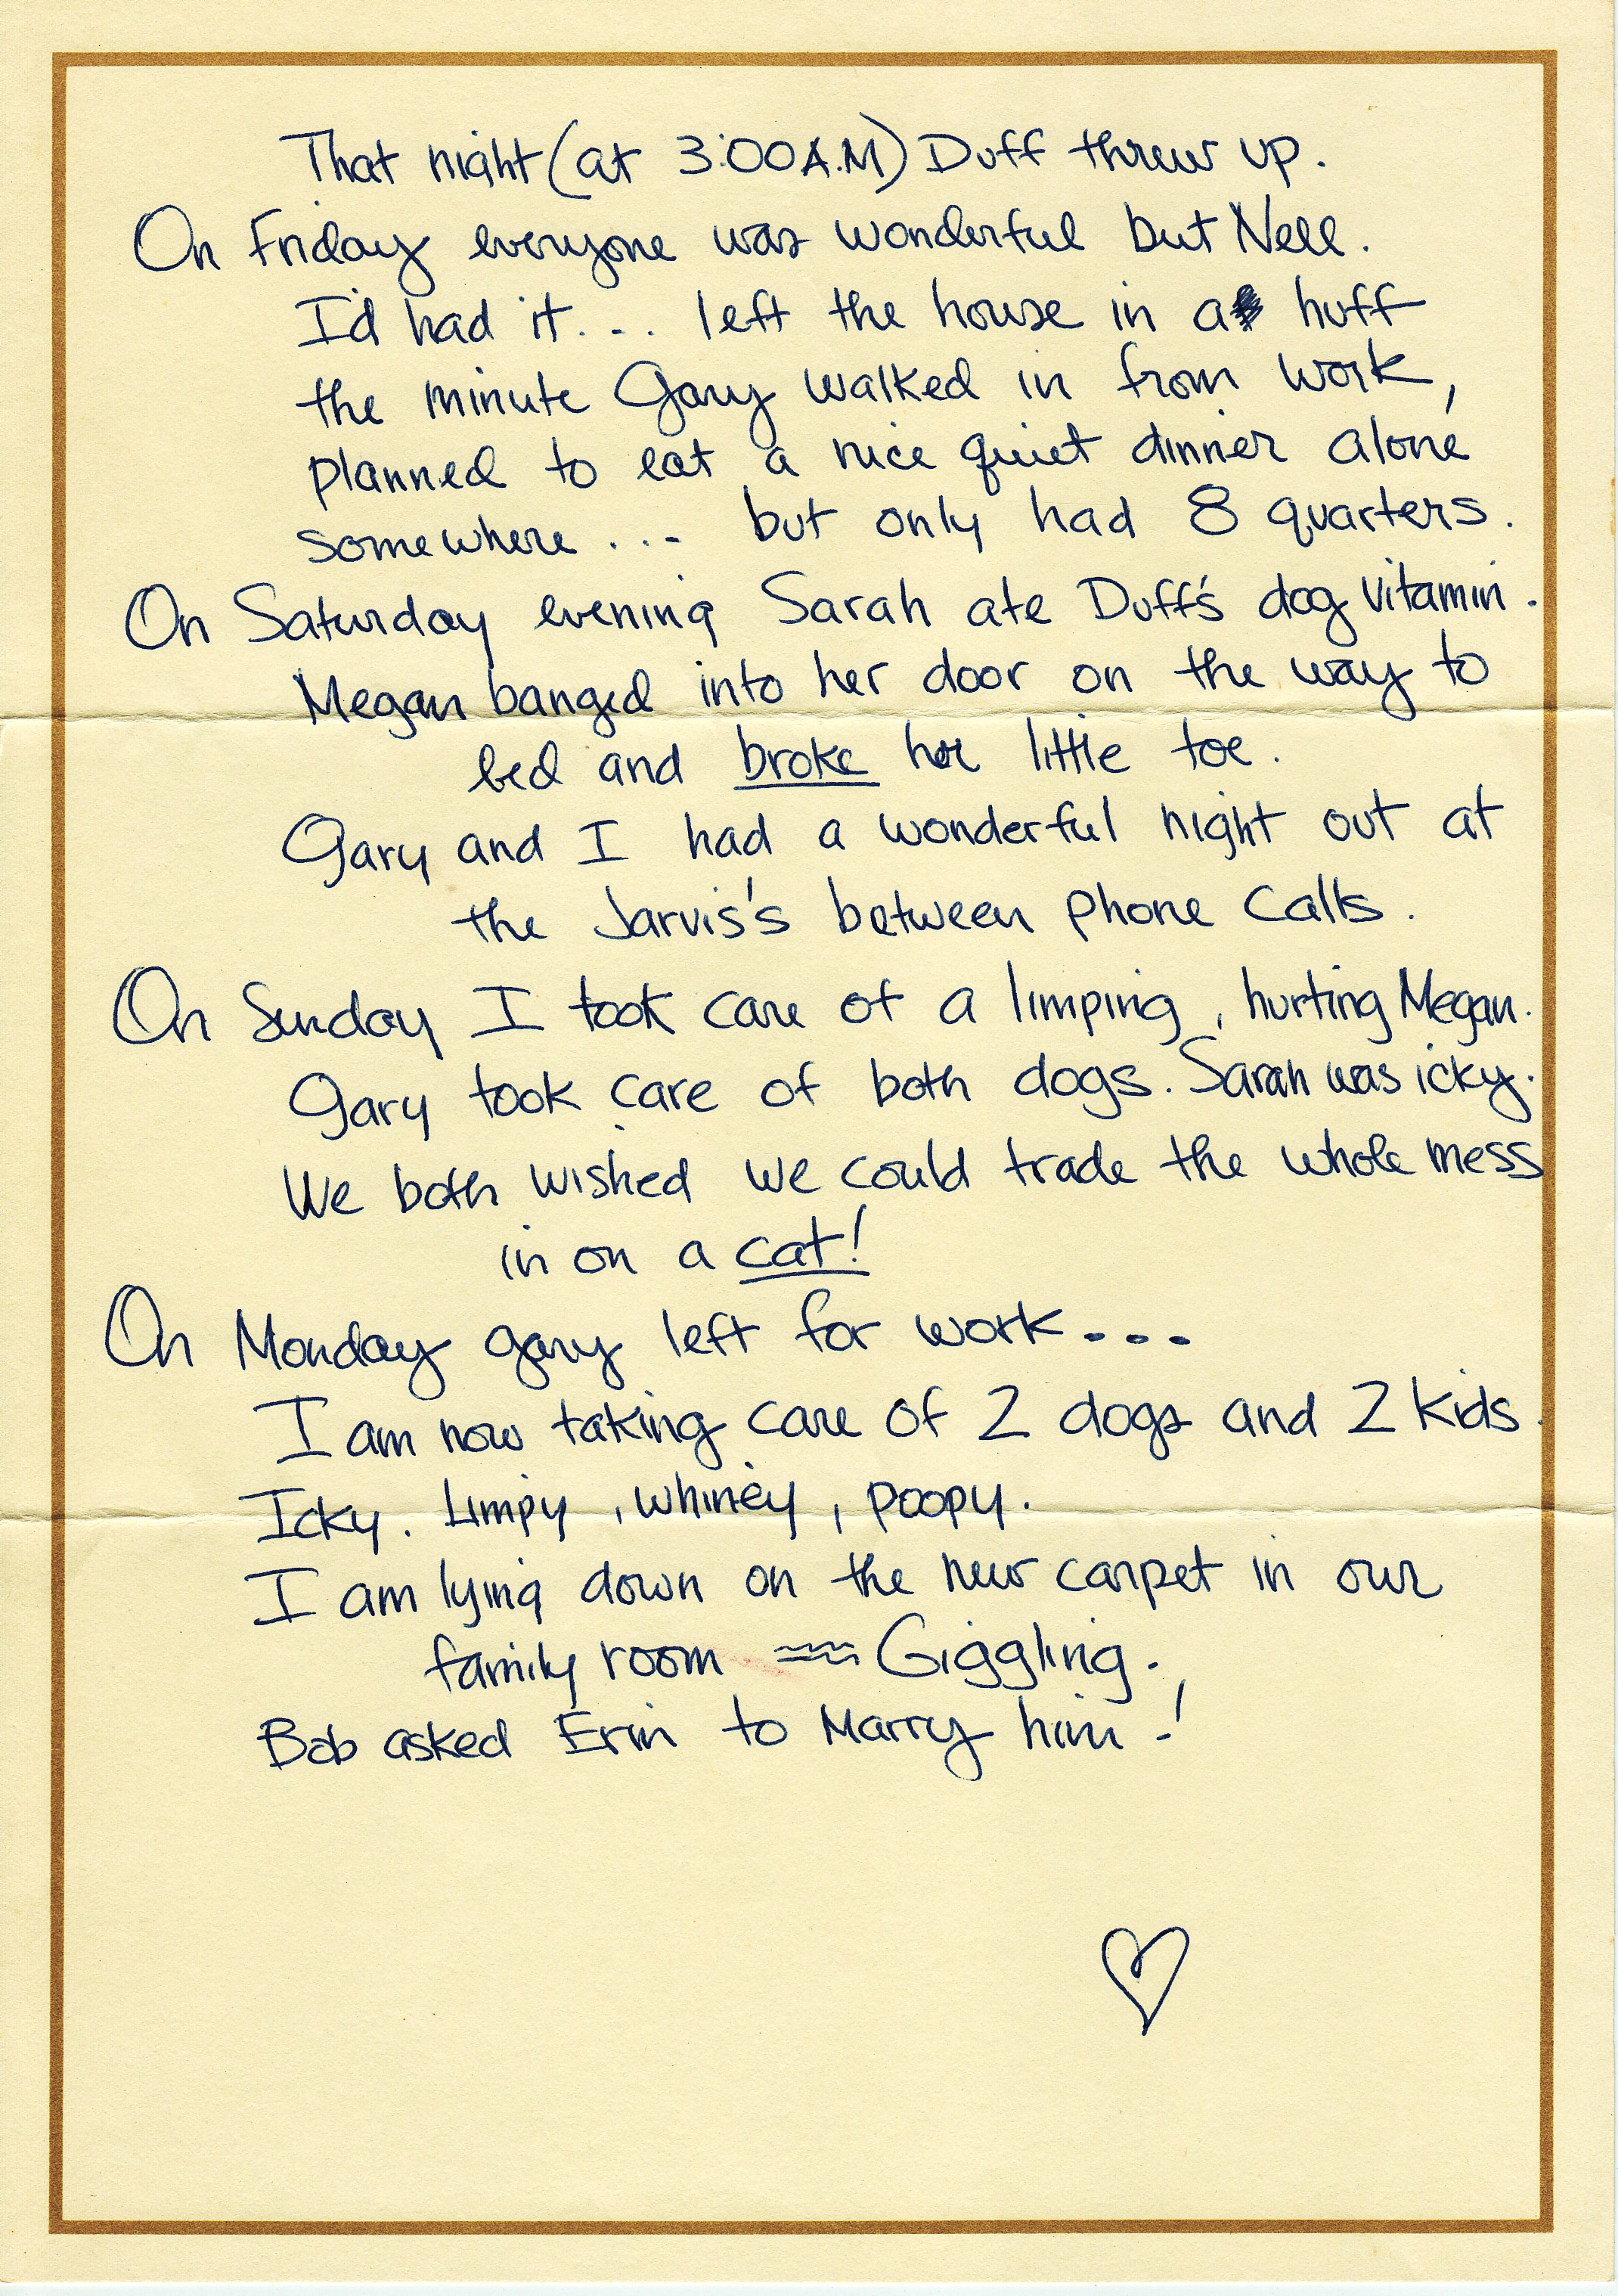 That night (at 3:00 A.M) Duff threw up.
On Friday everyone was wonderful but Nell.
I'd had it... left the house in a huff
the minute Gary walked in from work,
planned to eat a nice quiet dinner alone
somewhere... but only had 8 quarters.
On Saturday evening Sarah ate Duff's dog vitamin.
Megan banged into her door on the way to
bed and broke her little toe.
Gary and I had a wonderful night out at
the Jarvis's between phone calls.
On Sunday I took care of a limping, hurting Megan.
Gary took care of both dogs. Sarah was icky.
We both wished we could trade the whole mess
in on a cat!
On Monday Gary left for work...
I am now taking care of 2 dogs and 2 kids.
Icky. Limpy, whiney, poopy.
I am lying down on the new carpet in our
family room Giggling.
Bob asked Erin to Marry him!